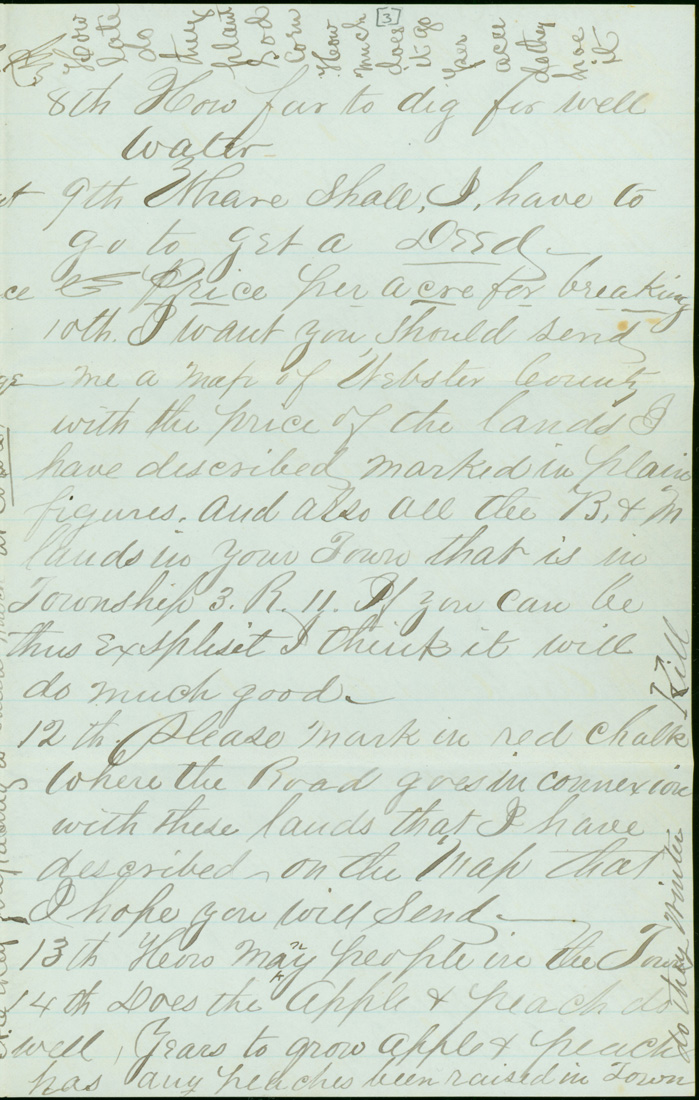 [3]
How late do they plant Sod Corn How much does it go per acre do they hoe it
8th How far to dig for well
water
9th Whare Shall, I, have to
go to get a Deed
Price per acre for breaking
10th. I want you should send
me a map of Webster County
with the price of the lands I
have described marked in plain
figures. and also all the B. & M
lands in your Town that is in
Township 3. R. 11. If you can be
thus Exsplisit I think it will
do much good.
12th. Please mark in red chalk
Where the Road goes in connexion
with these lands that I have
described on the Map that
I hope you will Send
13th How many people in the Town
14th Does the Apple & peach do
well, Years to grow apple & peach
has any peaches been raised in Town
do they Winter Kill